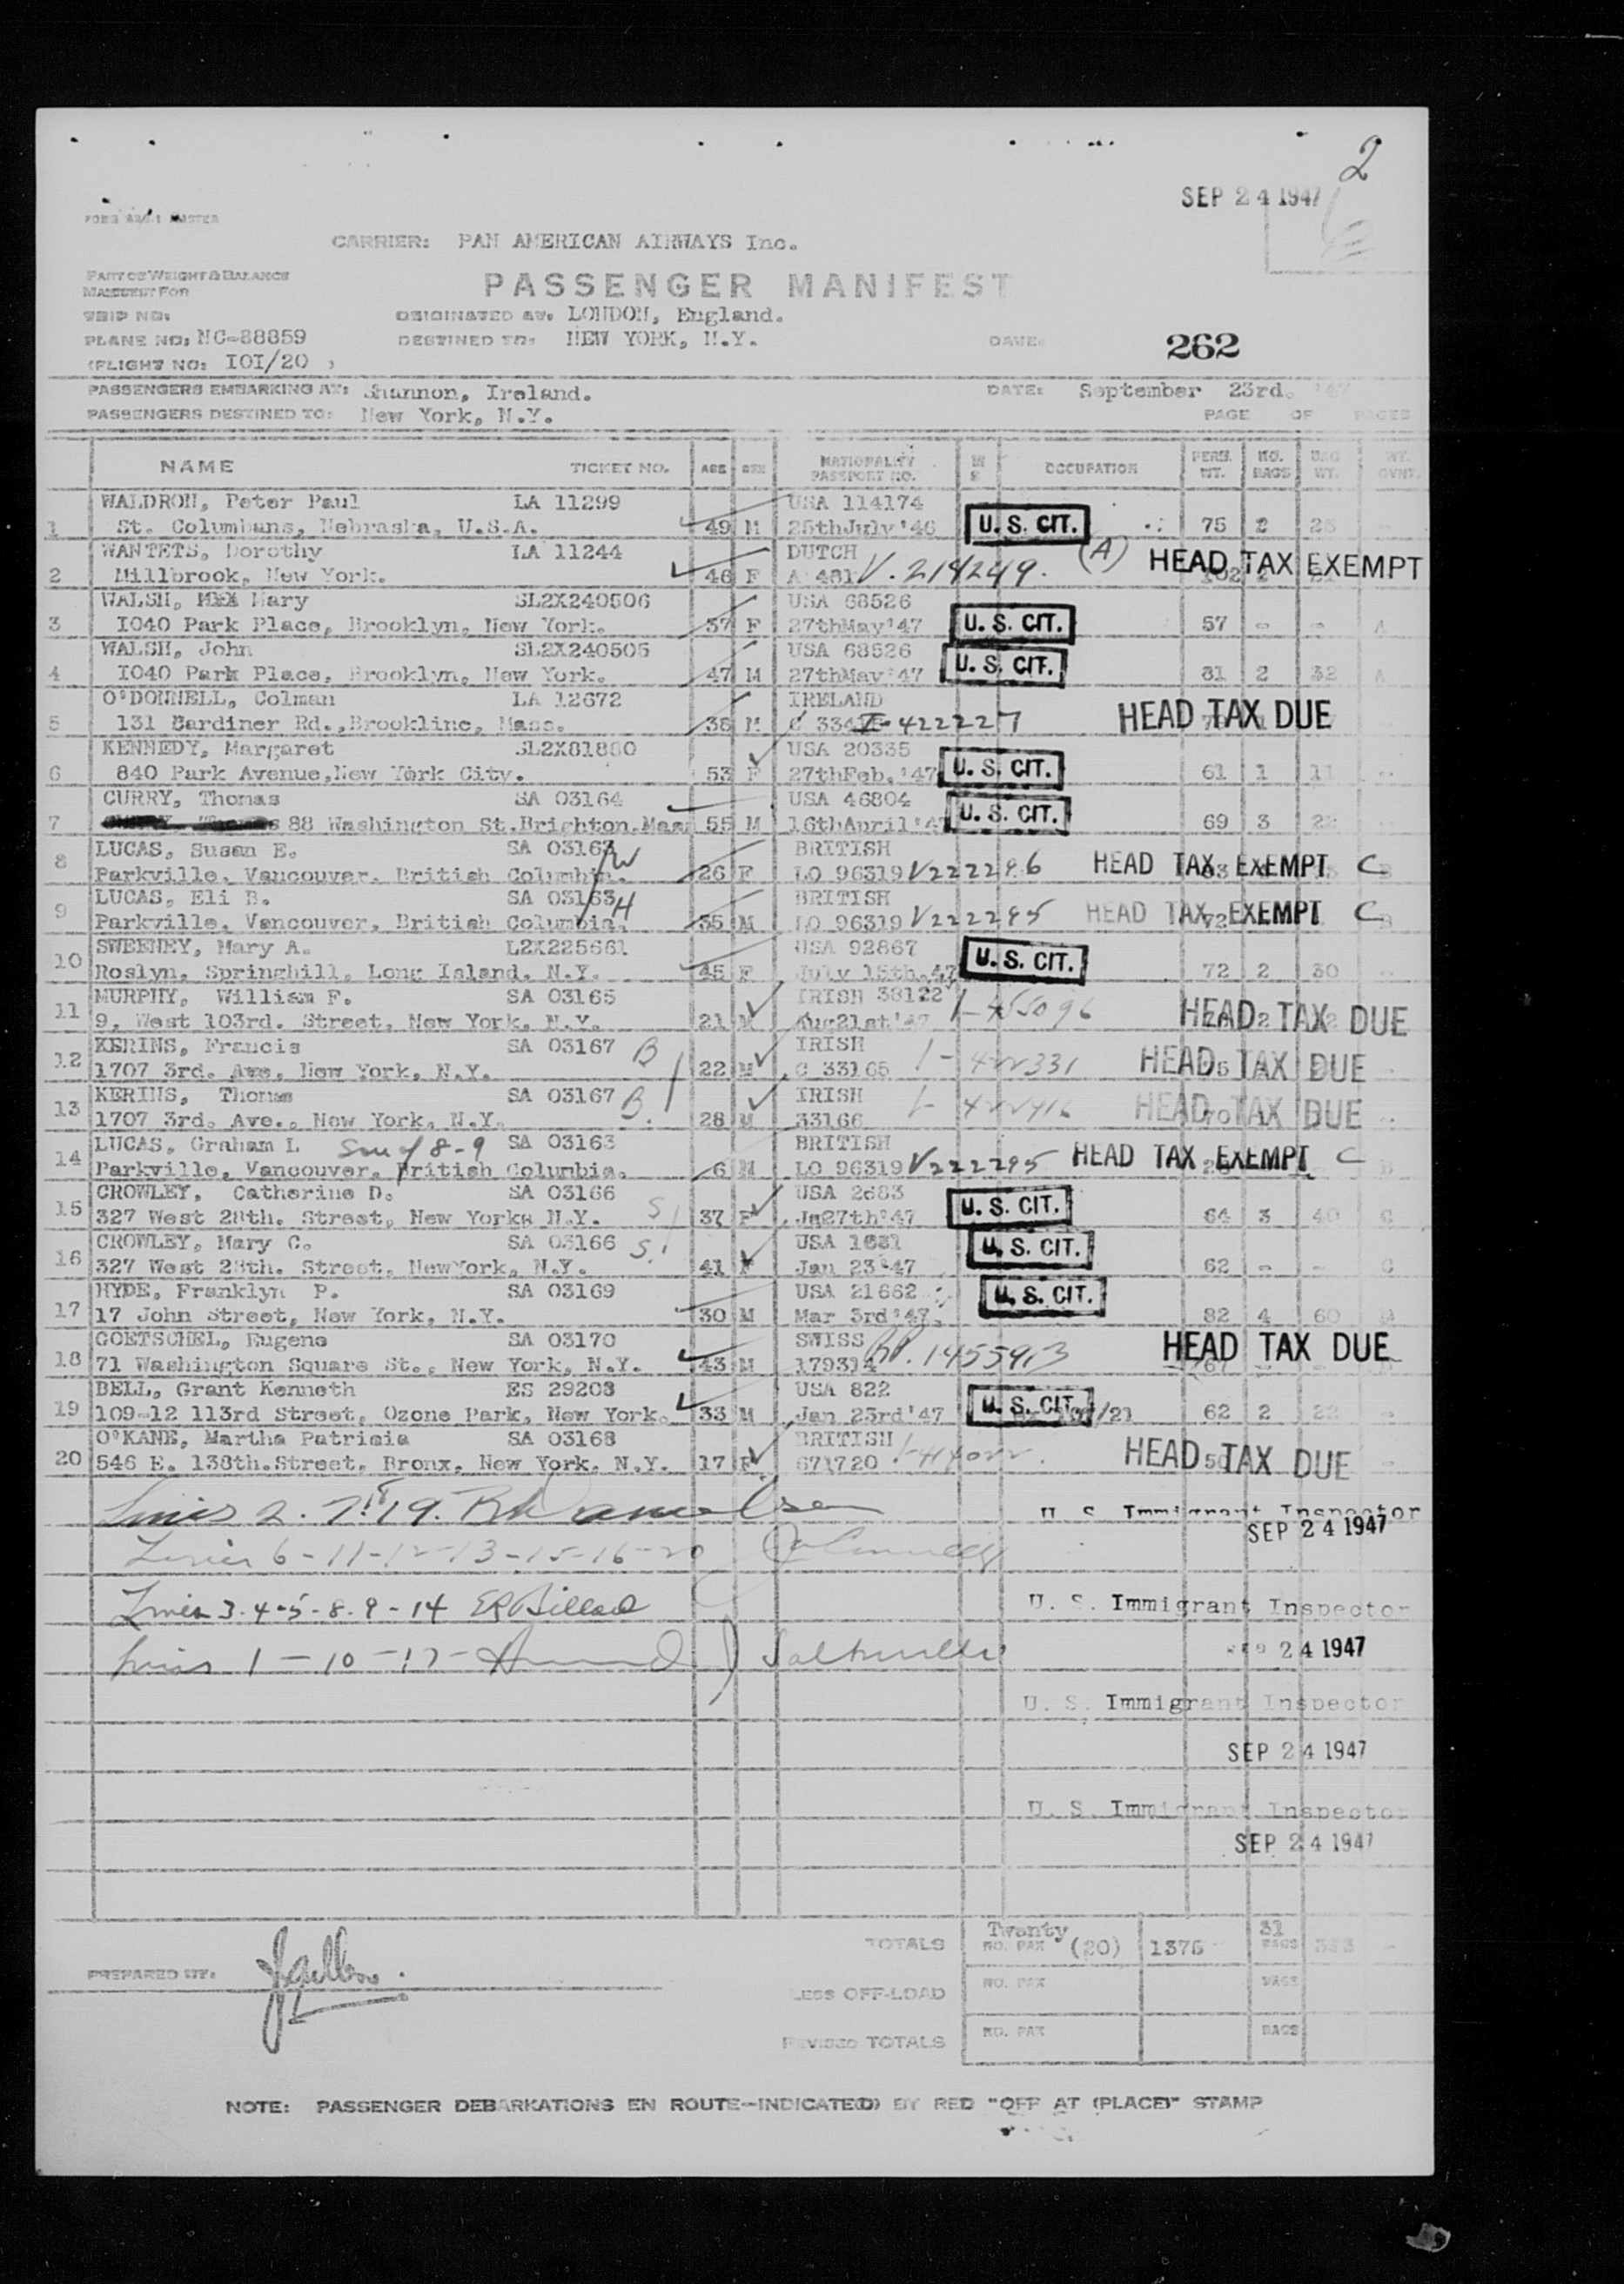 2
SEP 24 1947
CARRIER: PAN AMERICAN AIRWAYS Inc.
PART OF WEIGHT & BALANCE
MANIFEST FOR
PASSENGER MANIFEST
TRIP NO:
ORIGINATED AT: LONDON, England.
PLANE NO: NC-88859
DESTINED TO: NEW YORK, N.Y.
DATE:
262
(FLIGHT NO: IOI/20 )
PASSENGERS EMBARKING AT: Shannon, Ireland.
DATE: September 23rd. '47
PASSENGERS DESTINED TO: New York, N.Y.
PAGE OF PAGES
NAME TICKET NO. AGE SEX NATIONALITY PASSPORT NO. OCCUPATION PERS. WT. NO. BAGS BAG WT.
WALDRON, Peter Paul LA 11299 USA 114174
1 St. Columbans, Nebraska, U.S.A. 49 M 25thJuly'46 U. S. CIT. 75 2
WANTETS, Dorothy LA 11244 DUTCH
2 Millbrook, New York. 46 F A 481 V. 214249. (A) HEAD TAX EXEMPT
WALSH, Mary SL2X240506 USA 68526
3 I040 Park Place, Brooklyn, New York. 37 F 27thMay'47 U. S. CIT. 57 - - A
WALSH, John SL2X240505 USA 68526
4 I040 Park Place, Brooklyn, New York. 47 M 27thMay'47 U. S. CIT. 81 2 32 A
O'DONNELL, Colman LA 12672 IRELAND
5 131 Gardiner Rd.,Brookline, Mass. 38 M I-422227 HEAD TAX DUE
KENNEDY, Margaret SL2X81880 USA 20335
6 840 Park Avenue,New York City. 53 F 27thFeb.'47 U. S. CIT. 61 1 11
CURRY, Thomas SA 03164 USA 46804
7 88 Washington St.Brighton.Mass 55 M 16thApril'47 U. S. CIT. 69 3 22
LUCAS, Susan E. SA 03163 W BRITISH
8 Parkville, Vancouver, British Columbia. 26 F LO 96319 V222296 HEAD TAX EXEMPT C
LUCAS, Eli B. SA 03163 H BRITISH
9 Parkville, Vancouver, British Columbia. 35 M LO 96319 V222295 HEAD TAX EXEMPT C
SWEENEY, Mary A. L2X225661 USA 92867
10 Roslyn, Springhill, Long Island, N.Y. 45 F July 15th.47 U. S. CIT. 72 2 30
MURPHY, William F. SA 03165 IRISH 38122
11 9, West 103rd. Street, New York, N.Y. 21 M Aug21st'47 I-455096 HEAD TAX DUE
KERINS, Francis SA 03167 B IRISH
12 1707 3rd. Ave. New York, N.Y. 22 M C 33165 I-422331 HEAD TAX DUE
KERINS, Thomas SA 03167 B. IRISH
13 1707 3rd. Ave., New York, N.Y. 28 M 33166 I-422416 HEAD TAX DUE
LUCAS, Graham L Son of 8-9 SA 03163 BRITISH
14 Parkville, Vancouver, British Columbia. 6 M LO 96319 V222295 HEAD TAX EXEMPT C
CROWLEY, Catherine D. SA 03166 USA 2683
15 327 West 28th. Street, New York, N.Y. S 37 F Ja27th'47 U. S. CIT. 64 3 40 C
CROWLEY, Mary C. SA 03166 S. USA 1631
16 327 West 28th. Street, NewYork, N.Y. 41 F Jan 23'47 U. S. CIT. 62 - - C
HYDE, Franklyn P. SA 03169 USA 21662
17 17 John Street, New York, N.Y. 30 M Mar 3rd'47. U. S. CIT. 82 4 60
GOETSCHEL, Eugene SA 03170 SWISS
18 71 Washington Square St., New York, N.Y. 43 M 179314 RP. 1455913 HEAD TAX DUE
BELL, Grant Kenneth ES 29208 USA 822
19 109-12 113rd Street, Ozone Park, New York. 33 M Jan 23rd'47 U. S. CIT. 62 2 22
O'KANE, Martha Patricia SA 03168 BRITISH
20 546 E. 138th.Street, Bronx, New York, N.Y. 17 F 671720 HEAD TAX DUE
Lines 2. 7. 18 19.
U. S. Immigrant Inspector
SEP 24 1947
Lines 6-11-12-13-15-16-20
Lines 3-4-5-8-9-14
U. S. Immigrant Inspector
SEP 24 1947
Lines 1-10-17-
U. S. Immigrant Inspector
SEP 24 1947
U. S. Immigrant Inspector
SEP 24 1947
TOTALS Twenty NO. PAX (20) 1375 31 BAGS
PREPARED BY:
LESS OFF-LOAD NO. PAX BAGS
REVISED TOTALS NO. PAX BAGS
NOTE: PASSENGER DEBARKATIONS EN ROUTE-INDICATE(D) BY RED "OFF AT (PLACE)" STAMP